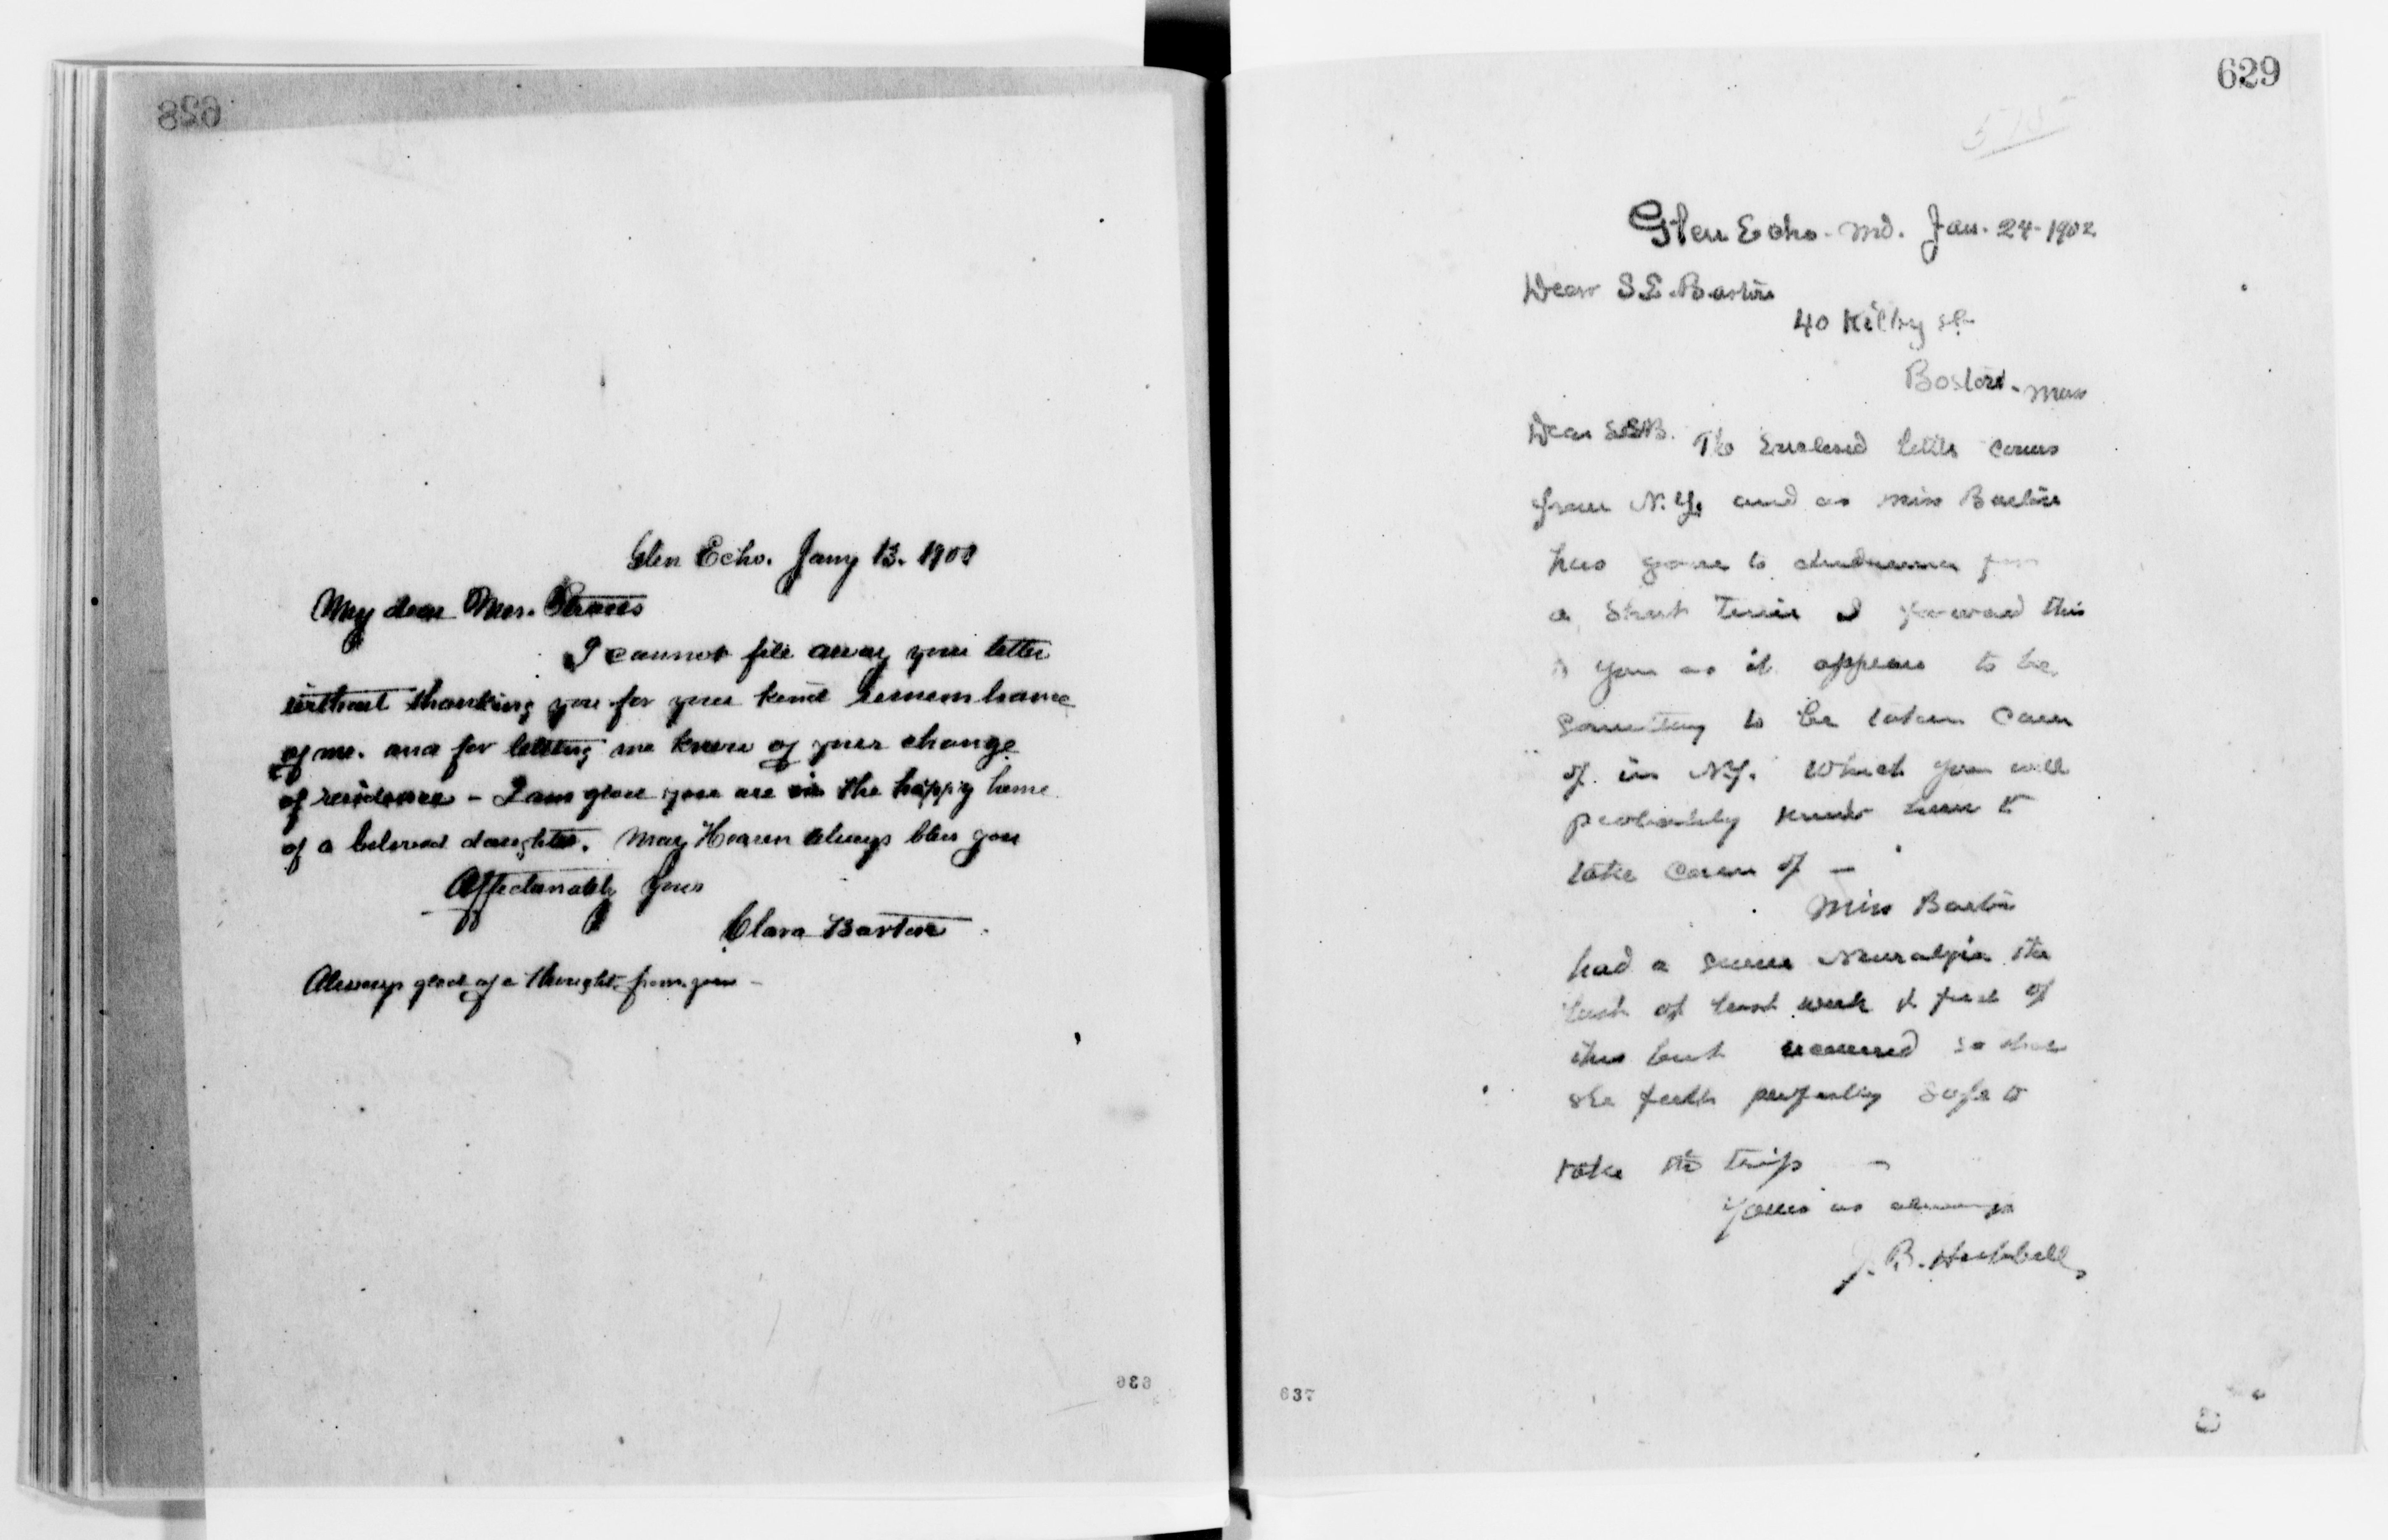 628
Glen Echo. Jany 13. 1902
My dear Mrs. Strauss
I cannot file away your letter
without thanking you for your kind remembrance
of me. and for letting me know of your change
of residence – I am glad you are in the happy home
of a beloved daughter. May Heaven always bless you
Affectionately yours
Clara Barton
Always glad of a thought from you –
636
629
Glen Echo. Md. Jan. 24. 1902
Dear S.E. Barton
40 Kilby St
Boston. Mass
Dear S.E.B. The Enclosed letter comes
from N.Y. and as Miss Barton
has gone to
a short time I forward this
to you as it appears to be
something to be taken care
of in N.Y. Which you will
probably know how to
take care of –
Miss Barton
had a severe Neuralgia the
last of last week & first of
this but recovered so that
she feels perfectly safe to
take the trip –
Yours as always
J. B. Hubbell
637